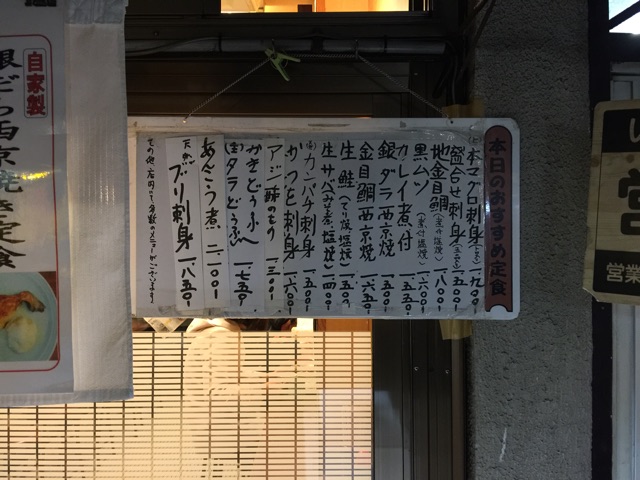 本日のおすすめ定食
本マグロ刺身 一、九〇〇
盛合せ刺身 一、五〇〇
地金目鯛 一、八〇〇
黒ムツ(煮付 塩焼) 一、六〇〇
カレイ煮付 一、五五〇
銀ダラ西京焼 一、八五〇
金目鯛西京焼 一、六五〇
生鮭(てり焼 塩焼) 一、五五〇
生サバ(みそ煮 塩焼) 一、四〇〇
カンパチ刺身 一、五〇〇
かつを刺身 一、六〇〇
アジ 一、三〇〇
かきどうふ
タラどうふ 一、七五〇
あんこう煮 二、一〇〇
天然ブリ刺身 一、八五〇
その他、店内にて多数のメニューがございます。
自家製
銀だら西京焼き定食
営業